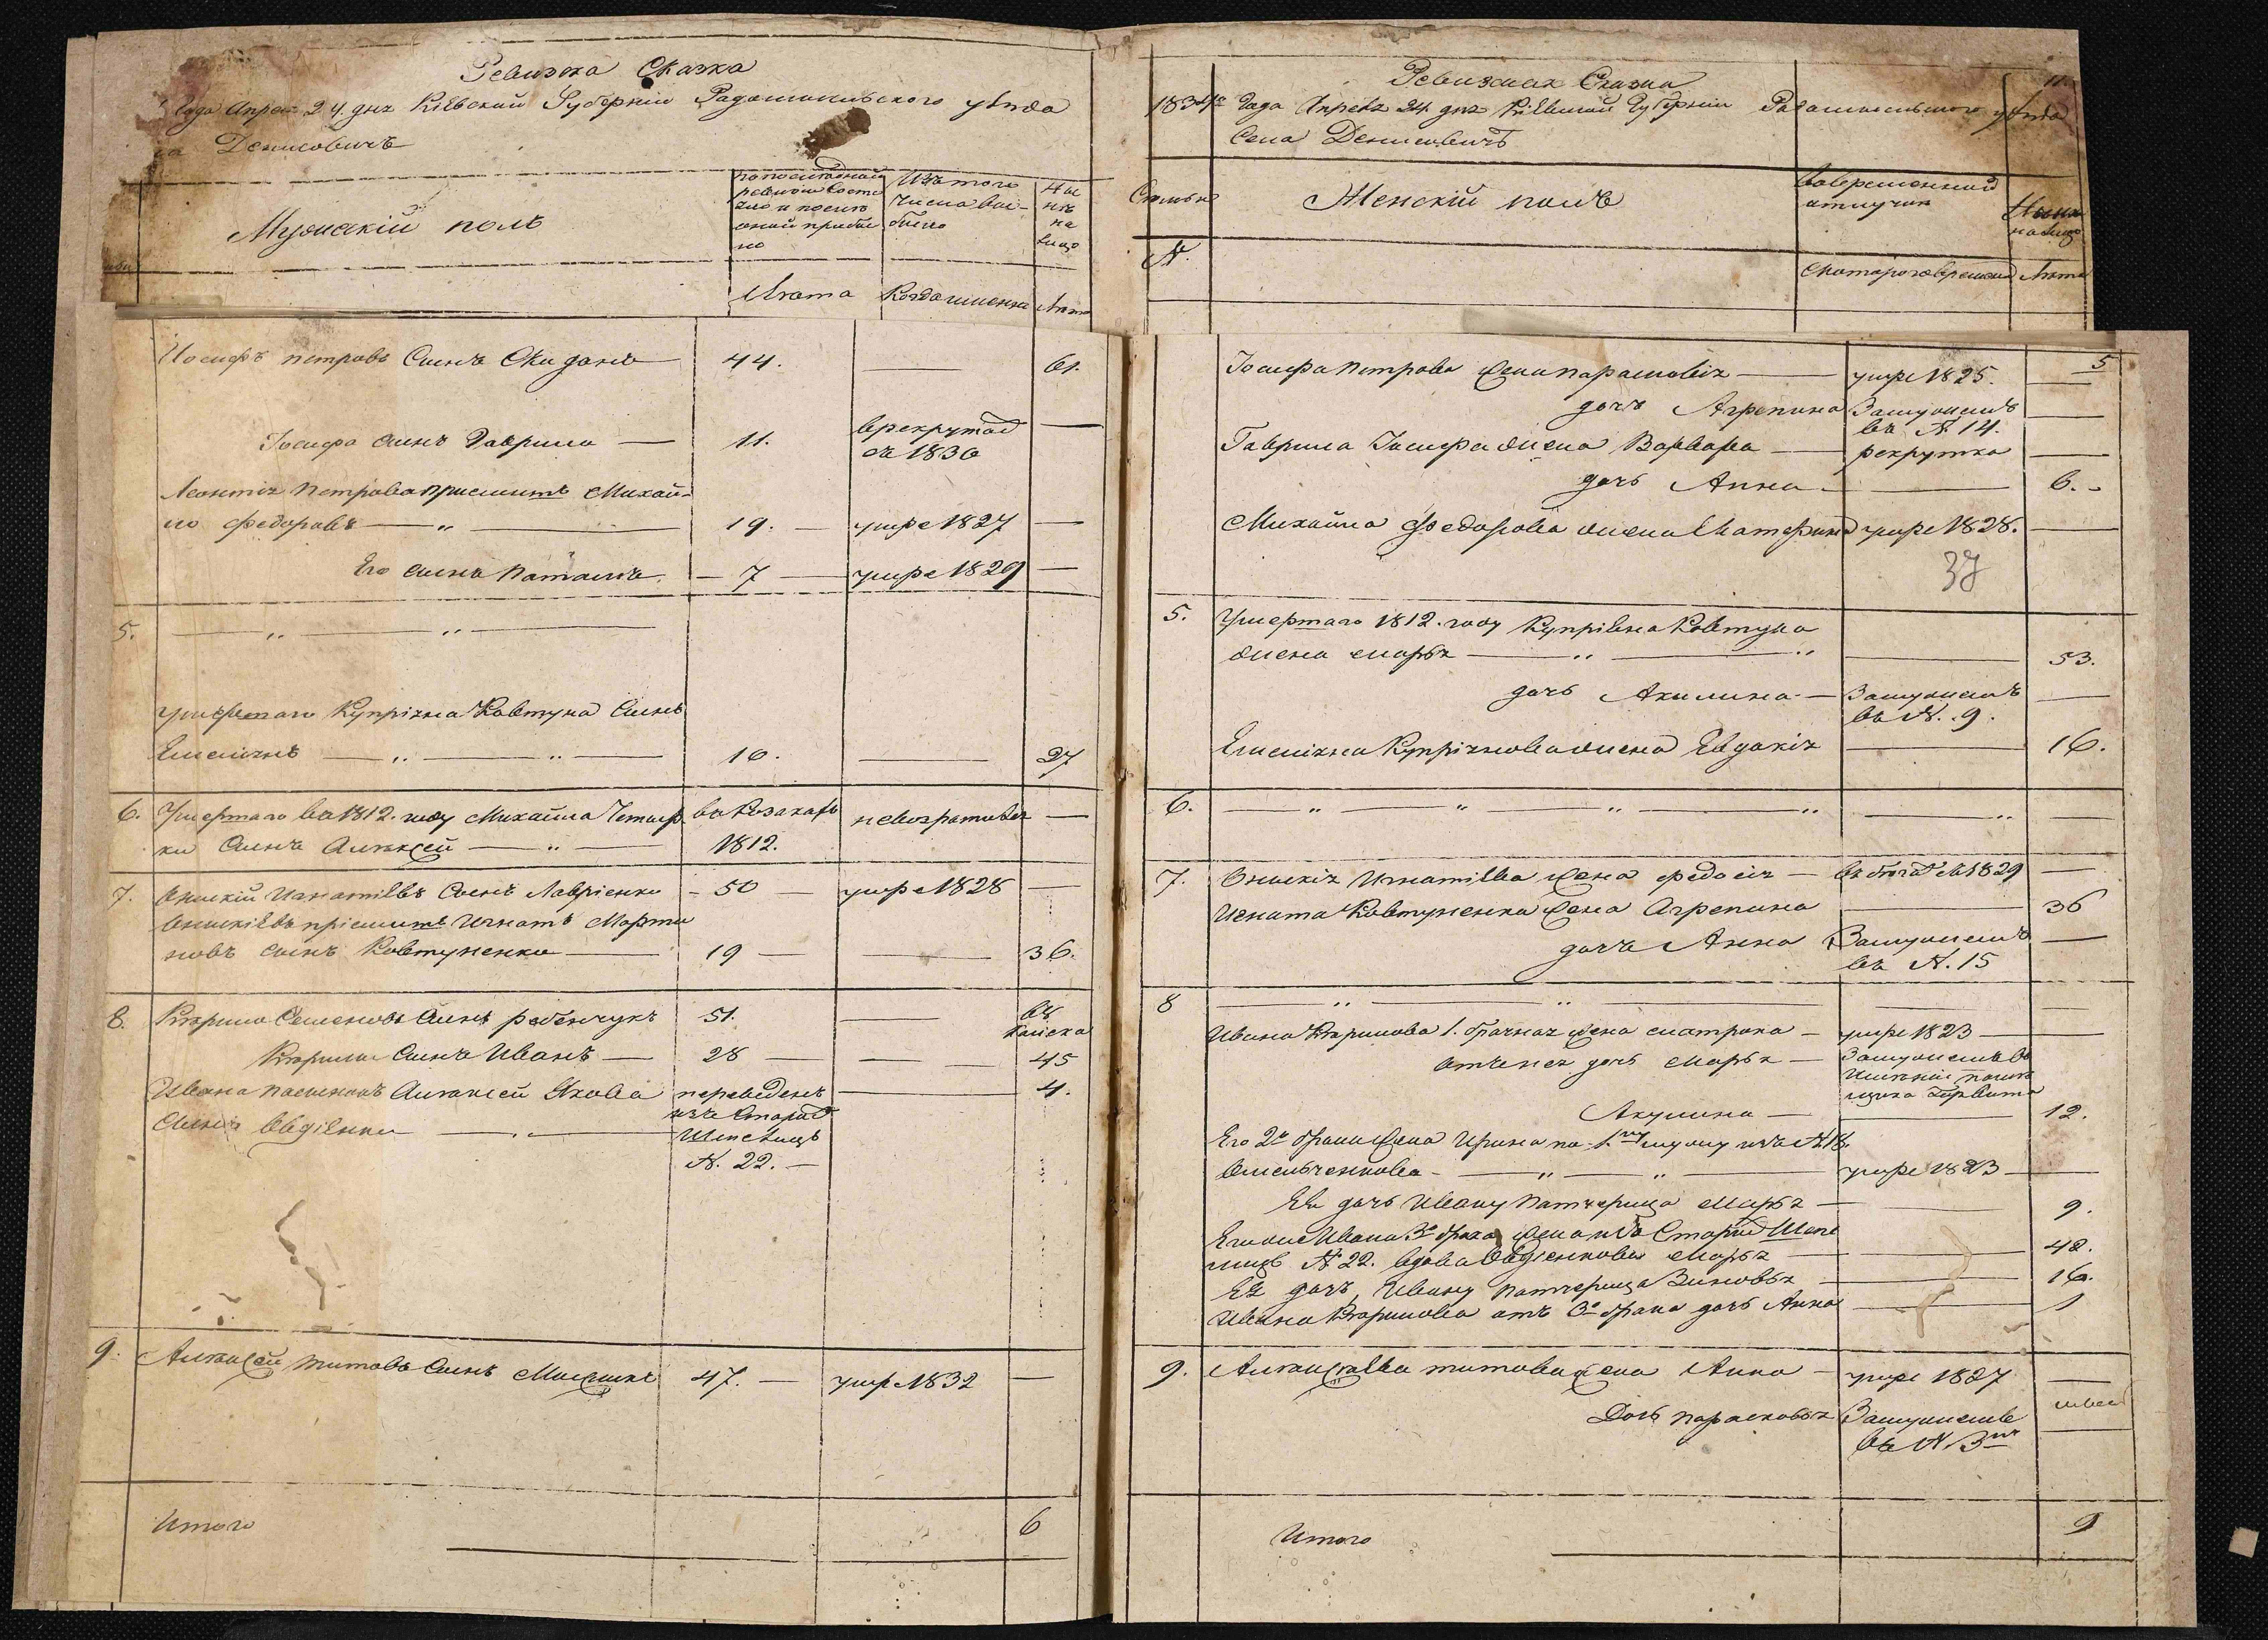 Ревизска Сказка
года Апрел 24. дня Кіевской Губерніи Радомишльского уѣзда
Денисовичъ
Мужескій полъ
по последней
ревизіи состо
яло и после
оной прибы
ло
Изъ того
числа вы-
было
Ны
нѣ
на
лицо
Лѣта
Когда именно
Лѣта
Иосифъ петровъ Сынъ Скиданъ
44.
61.
Іосифа сынъ Гаврило
11.
в рекрутах
съ 1830
Леонтія петрова приемитъ Михай-
ло федоровъ
19.
умре 1827
Его сынъ Потапъ
7
умре 1829
5.
умершаго Купріяна Ковтуна Сынъ
Емелiянъ
10.
27
6. Умершаго въ 1812. году Михайла Четвер
ки Сынъ Алексей
въ Козакахъ
1812.
невозратився
7. Онискій Игнатіевъ Сынъ Левченко
50
умре 1828
Онискіевъ пріемитъ Игнатъ Марти
новъ сынъ Ковтуненко
19
36.
8. Кирило Семеновъ Сынъ рабенчукъ
51.
68
Кирили Сынъ Иванъ
28
45
Ивана пасинокъ Алексей Якова
Сынъ Овдіенко
переведенъ
изъ Старой
Шепелицъ
N. 22.
4.
9. Алексей титовъ Сынъ
47.
умре 1832
Итого
6
Ревизская Сказка
11.
1834го Года Апреля 24 дня Кіевской Губерніи Радомишльского уѣзда
Села Денисовичъ
Семьи
N.
Женскій полъ
Вовременной
отлучки
Ныне
налицо
Скотораго времени
Лѣта
5
Іосифа петрова жена парасковія
умре 1825.
дочъ Агрепина
Замужемъ
въ N 14.
Гаврила Іосифа жена Варвара
рекрутка
дочъ Анна
6.
Михайла Федорова жена Екатерина
умре 1828.
37
5. Умершаго 1812. году Купріяна Ковтуна
жена марья
53.
дочъ Акилина
Замужемъ
въ N. 9.
Емелiяна Купріянова жена Евдокія
16.
6.
7. Онискія Игнатіева жена федосія
въ бѣгахъ съ 1829
Игната Ковтуненка жена Агрепина
36
дочъ Анна
Замужемъ
въ N. 15
8
Ивана Кирилова 1. брачная жена матрона
умре 1823
отъ нея дочъ марья
Замужемъ въ
имѣніи помѣ
щика
Акулина
12.
Его 2й брачн жена Ирина по 1му мужу изъ N 18.
Омельченкова
умре 1823
Ея дочъ Ивану патчерица марья
9.
Его же Ивана 3го брака жена изъ Старой Шепе
лицъ N 22. вдова Овдіенкова марья
48.
Ея дочъ, Ивану патчерица Зиновья
16.
Ивана Кирилова отъ 3го брака дочъ Анна
1
9. Алексѣева титова жена Анна
умре 1827
Дочъ парасковья
Замужемъ
въ N 3мъ
Итого
9